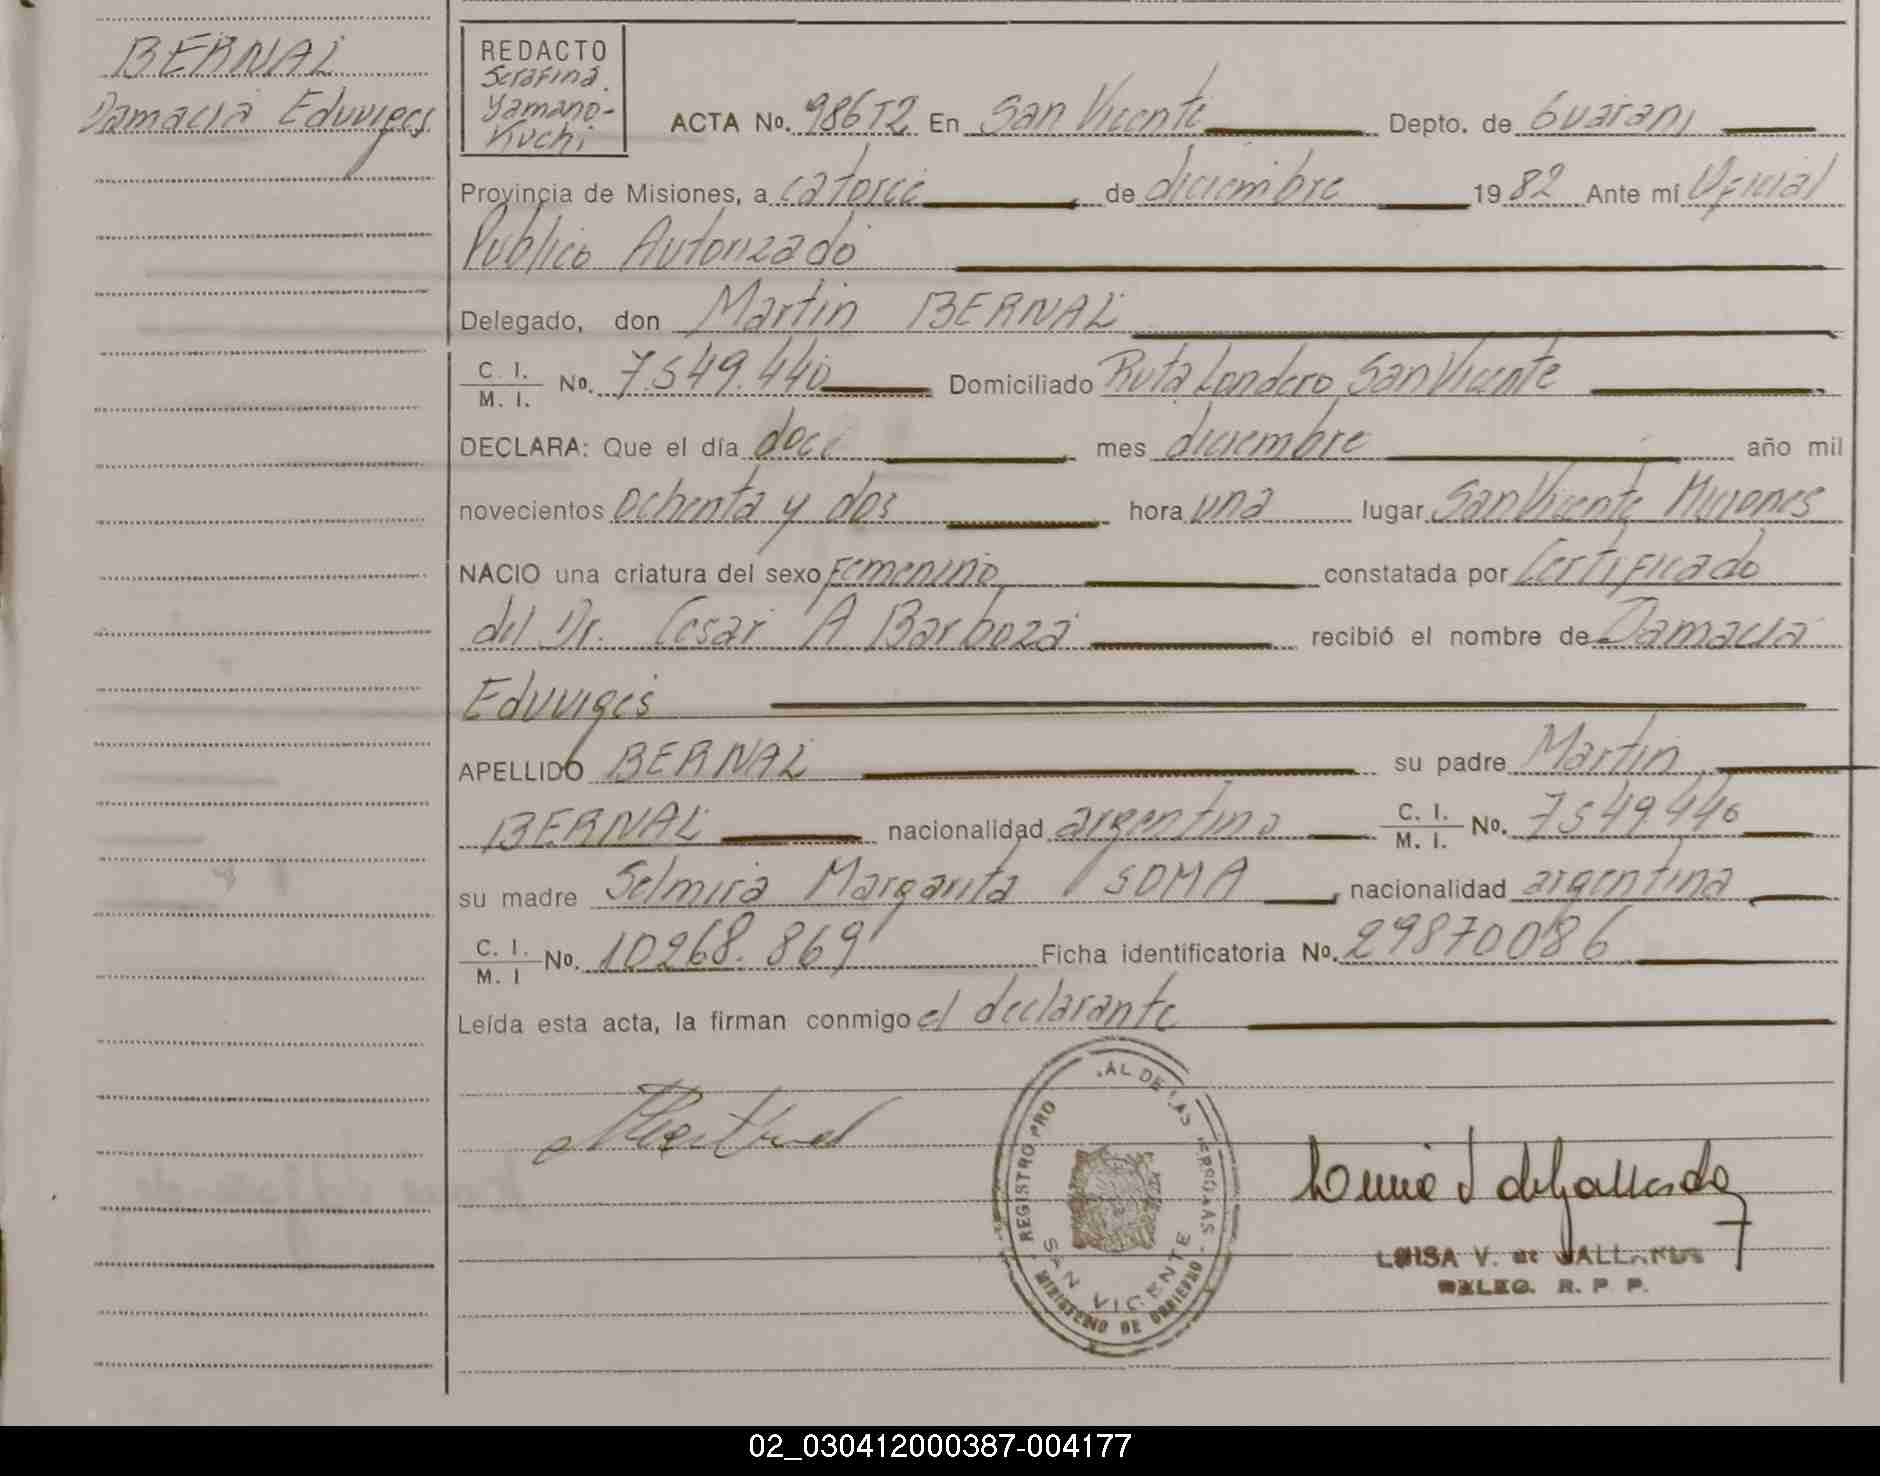 BERNAL
Damacia Eduviges
REDACTO
Serafina
Yamano-
Kuchi
ACTA No. 986T2 En San Vicente Depto. de Guarani
Provincia de Misiones, a catorce de diciembre 1982 Ante mí Oficial
Publico Autorizado
Delegado, don Martin BERNAL
C. I. / M. I. No. 7.549.440 Domiciliado Ruta Londero San Vicente
DECLARA: Que el día doce mes diciembre año mil
novecientos ochenta y dos hora una lugar San Vicente Misiones
NACIO una criatura del sexo Femenino constatada por Certificado
del Dr. Cesar A Barboza recibió el nombre de Damacia
Eduviges
APELLIDO BERNAL su padre Martin
BERNAL nacionalidad argentina C. I. / M. I. No. 7549.440
su madre Selmira Margarita SOMA nacionalidad argentina
C. I. / M. I No. 10268.869 Ficha identificatoria No. 29870086
Leída esta acta, la firman conmigo el declarante
REGISTRO PRO AL DE LAS PERSONAS
SAN VICENTE
MINISTERIO DE GOBIERNO
LUISA V. de
DELEG. R. P. P.
02_030412000387-004177